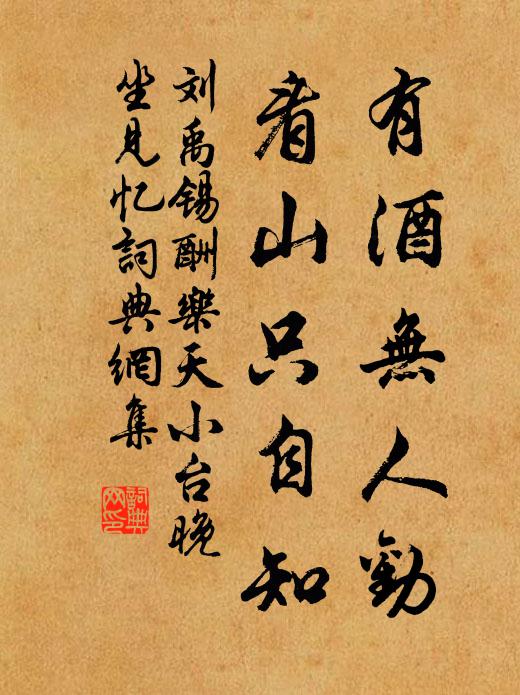 有酒無人勸
看山只自知
刘禹锡酬樂天小台晚
坐見忆詞典網集
詞典网印